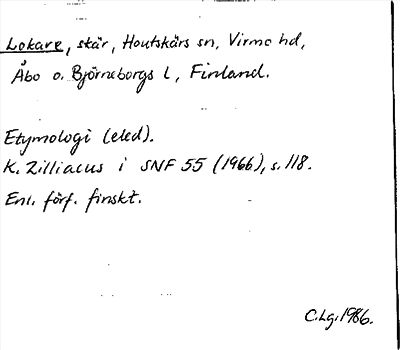 Lokare, skär, Houtskärs sn, Virmo hd,
Åbo o. Björneborgs l, Finland.
Etymologi (eled).
K. Zilliacus i SNF 55 (1966), s. 118.
Enl. förf. finskt.
C.Lg. 1986.